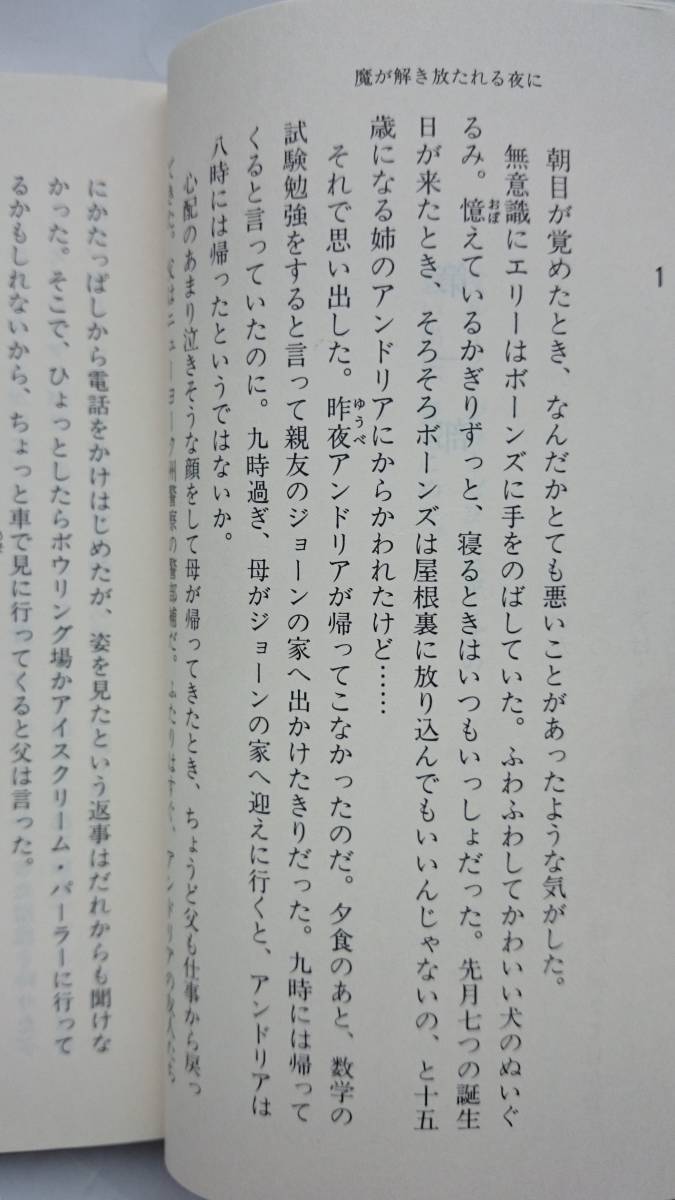 魔が解き放たれる夜に
1
朝目が覚めたとき、なんだかとても悪いことがあったような気がした。
無意識にエリーはボーンズに手をのばしていた。ふわふわしてかわいい犬のぬいぐ
るみ。憶えているかぎりずっと、寝るときはいつもいっしょだった。先月七つの誕生
日が来たとき、そろそろボーンズは屋根裏に放り込んでもいいんじゃないの、と十五
歳になる姉のアンドリアにからかわれたけど……
それで思い出した。昨夜アンドリアが帰ってこなかったのだ。夕食のあと、数学の
試験勉強をすると言って親友のジョーンの家へ出かけたきりだった。九時には帰って
くると言っていたのに。九時過ぎ、母がジョーンの家へ迎えに行くと、アンドリアは
八時には帰ったというではないか。
心配のあまり泣きそうな顔をして母が帰ってきたとき、ちょうど父も仕事から戻っ
てきた。父はニューヨーク州警察の警部補だ。ふたりはすぐ、アンドリアの友人たち
にかたっぱしから電話をかけはじめたが、姿を見たという返事はだれからも聞けな
かった。そこで、ひょっとしたらボウリング場かアイスクリーム・パーラーに行って
るかもしれないから、ちょっと車で見に行ってくると父は言った。